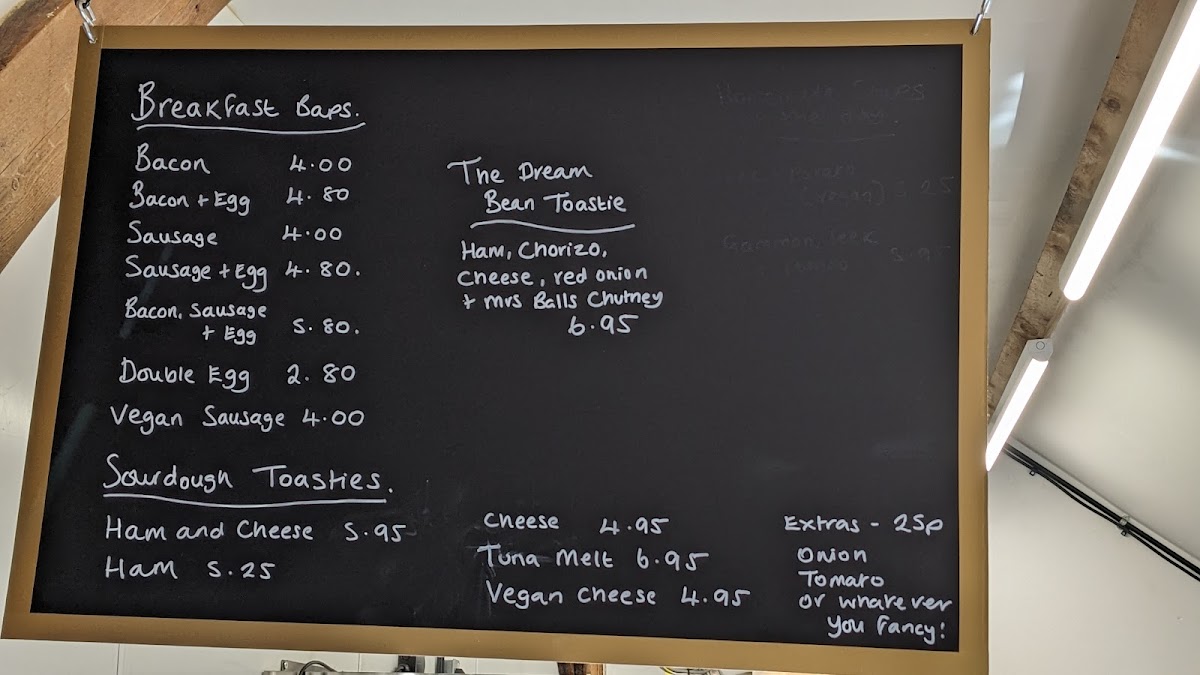 Breakfast Baps.
Bacon 4.00
Bacon + Egg 4.80
Sausage 4.00
Sausage + Egg 4.80.
Bacon, Sausage
+ Egg 5.80.
Double Egg 2.80
Vegan Sausage 4.00
The Dream
Bean Toastie
Ham, Chorizo,
Cheese, red onion
+ Mrs Balls Chutney
6.95
Sourdough Toasties.
Ham and Cheese 5.95
Ham 5.25
Cheese 4.95
Tuna Melt 6.95
Vegan Cheese 4.95
Extras - 25p
Onion
Tomato
or whatever
you fancy!